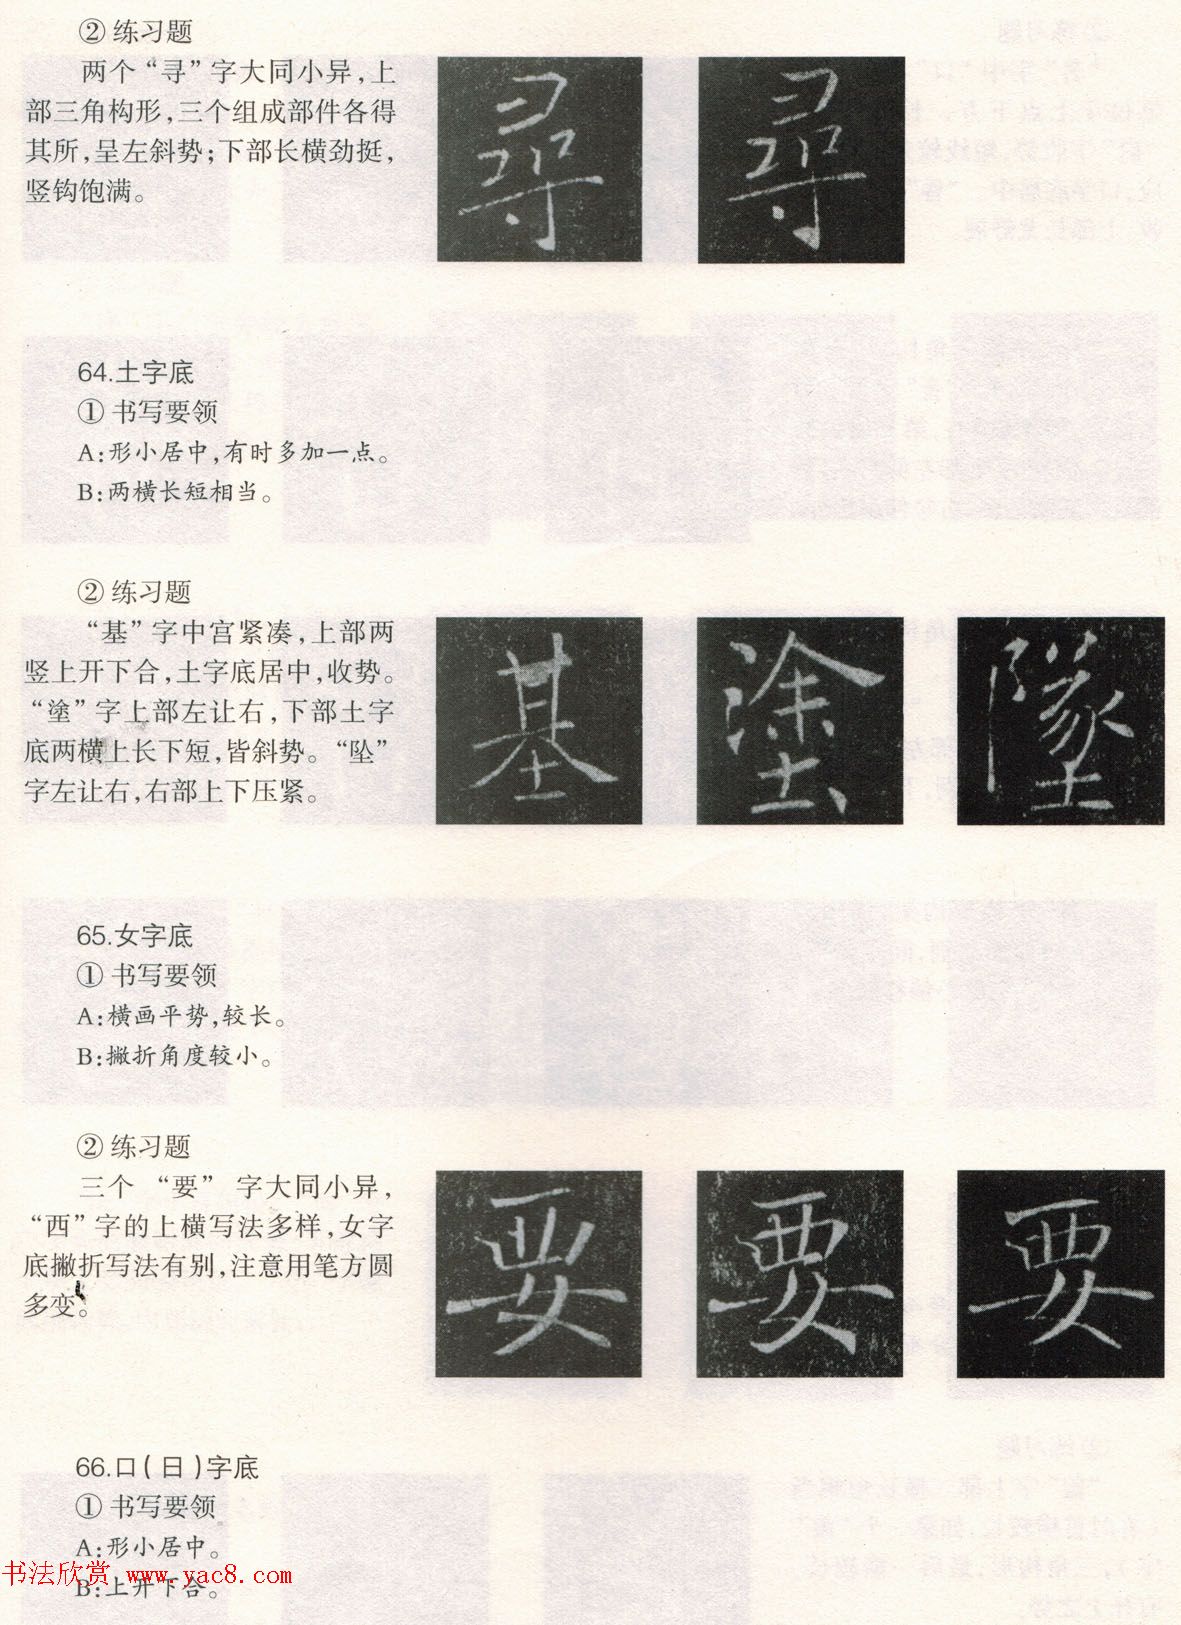 ② 练习题
两个“寻”字大同小异，上
部三角构形，三个组成部件各得
其所，呈左斜势；下部长横劲挺，
竖钩饱满。
尋 尋
64.土字底
① 书写要领
A：形小居中，有时多加一点。
B：两横长短相当。
② 练习题
“基”字中宫紧凑，上部两
竖上开下合，土字底居中，收势。
“塗”字上部左让右，下部土字
底两横上长下短，皆斜势。“坠”
字左让右，右部上下压紧。
基 塗 墜
65.女字底
① 书写要领
A：横画平势，较长。
B：撇折角度较小。
② 练习题
三个“要”字大同小异，
“西”字的上横写法多样，女字
底撇折写法有别，注意用笔方圆
多变。
要 要 要
66.口(日)字底
① 书写要领
A：形小居中。
书法欣赏 www.yac8.com
B：上开下合。